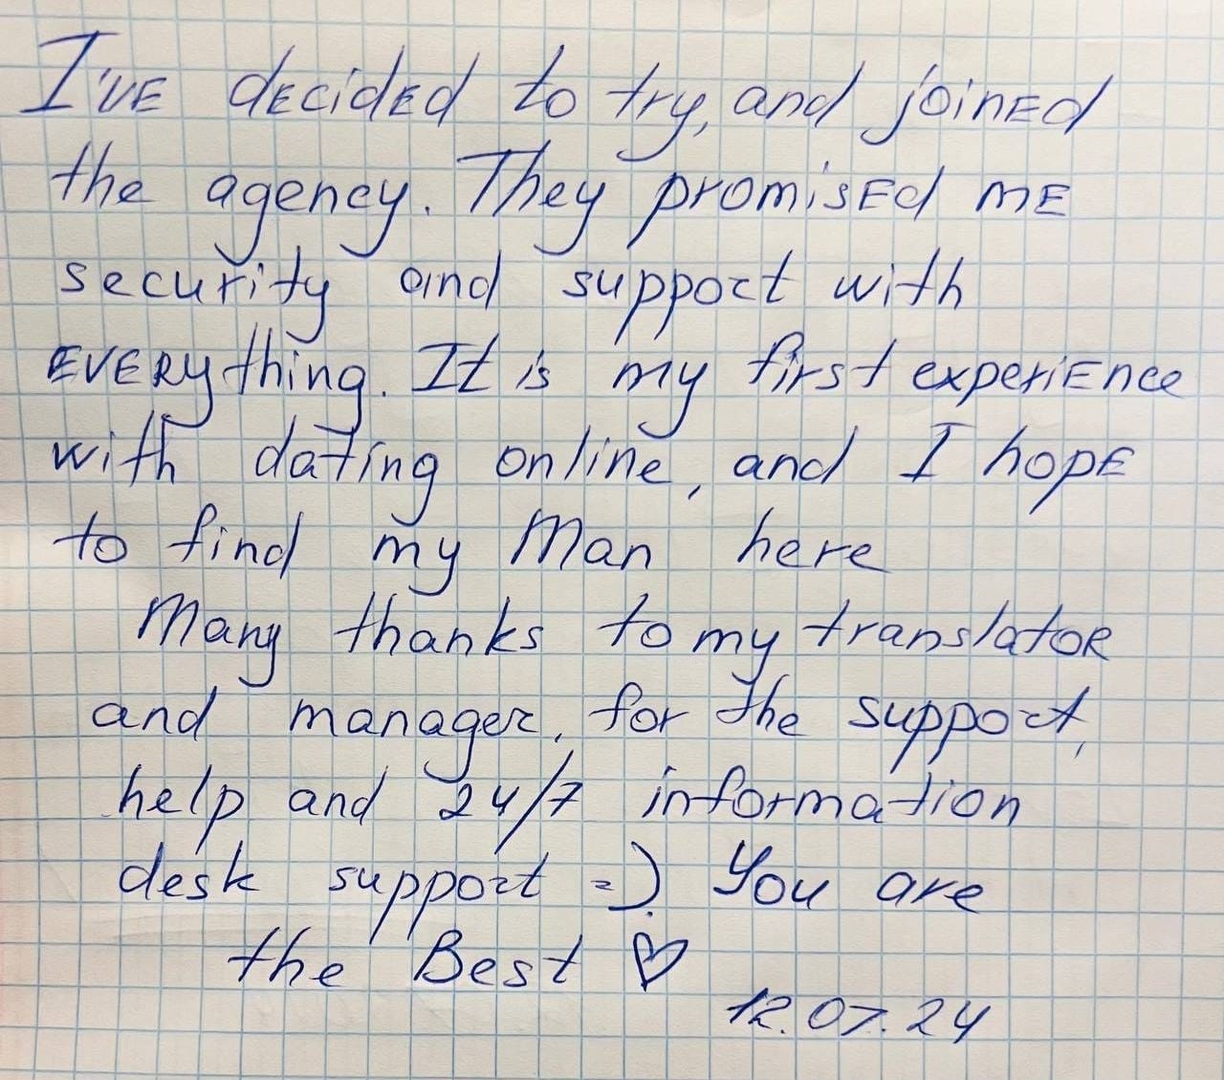 I'VE decided to try, and joined
the agency. They promised me
security and support with
everything. It is my first experience
with dating online, and I hope
to find my Man here
Many thanks to my translator
and manager, for the support,
help and 24/7 information
desk support =). You are
the Best ♡
12.07.24